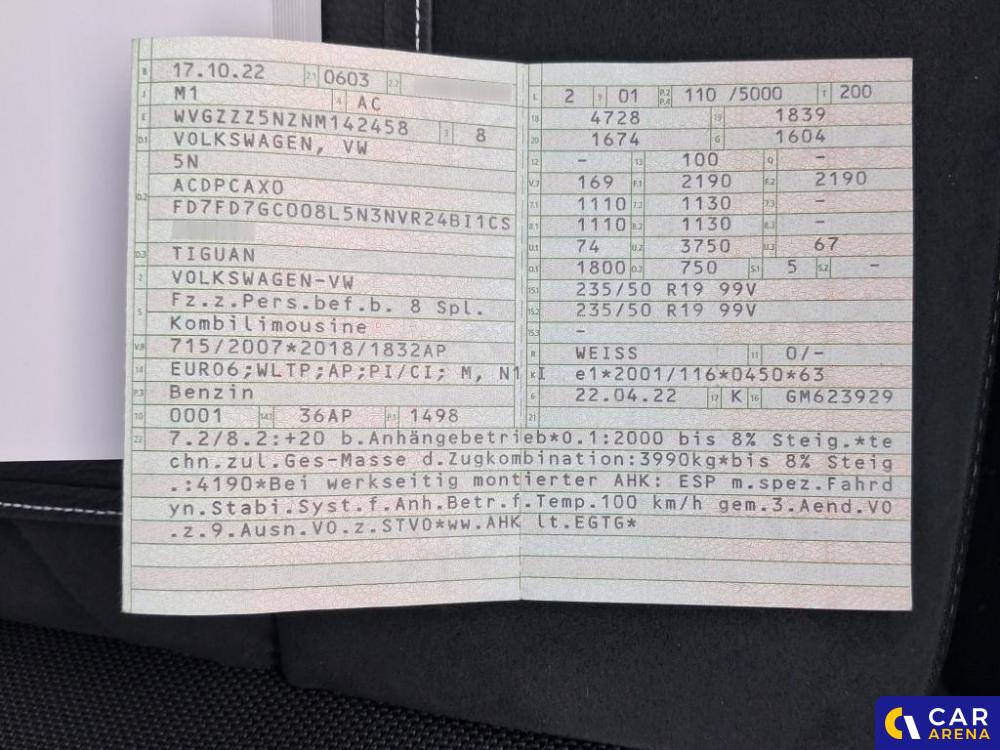 B 17.10.22 2.1 0603 2.2
J M1 4 AC
E WVGZZZ5NZNM142458 3 8
D.1 VOLKSWAGEN, VW
5N
D.2 ACDPCAX0
FD7FD7GC008L5N3NVR24BI1CS
D.3 TIGUAN
2 VOLKSWAGEN-VW
5 Fz.z.Pers.bef.b. 8 Spl.
Kombilimousine
V.9 715/2007*2018/1832AP
14 EURO6;WLTP;AP;PI/CI; M, N1 I
P.3 Benzin
10 0001 14.1 36AP P.1 1498
L 2 9 01 P.2 P.4 110 /5000 T 200
18 4728 19 1839
20 1674 G 1604
12 - 13 100 Q -
V.7 169 F.1 2190 F.2 2190
7.1 1110 7.2 1130 7.3 -
8.1 1110 8.2 1130 8.3 -
U.1 74 U.2 3750 U.3 67
O.1 1800 O.2 750 S.1 5 S.2 -
15.1 235/50 R19 99V
15.2 235/50 R19 99V
15.3 -
R WEISS 11 0/-
K e1*2001/116*0450*63
6 22.04.22 17 K 16 GM623929
21
22 7.2/8.2:+20 b.Anhängebetrieb*0.1:2000 bis 8% Steig.*te
chn.zul.Ges-Masse d.Zugkombination:3990kg*bis 8% Steig
.:4190*Bei werkseitig montierter AHK: ESP m.spez.Fahrd
yn.Stabi.Syst.f.Anh.Betr.f.Temp.100 km/h gem.3.Aend.VO
.z.9.Ausn.VO.z.STVO*ww.AHK lt.EGTG*
CAR
ARENA